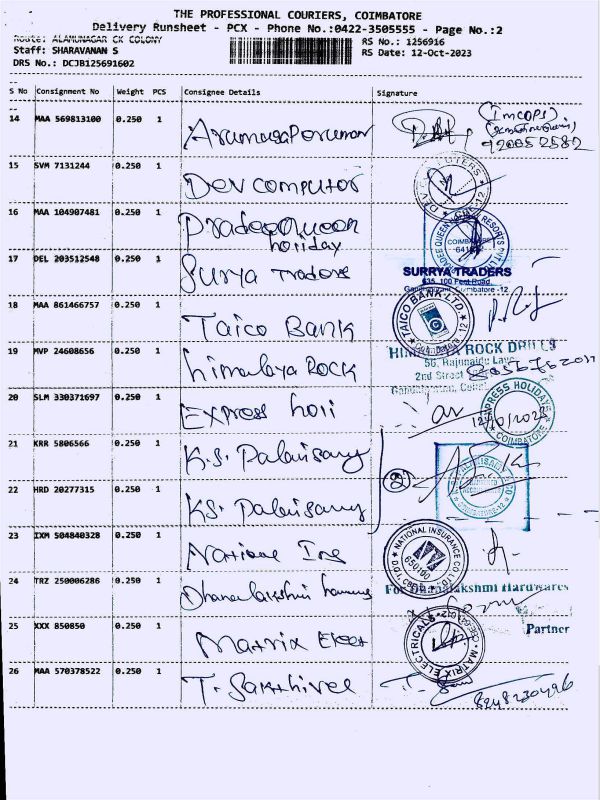 THE PROFESSIONAL COURIERS, COIMBATORE
Delivery Runsheet - PCX - Phone No.:0422-3505555 - Page No.:2
Route: ALAMUNAGAR CK COLONY
RS No.: 1256916
Staff: SHARAVANAN S
RS Date: 12-Oct-2023
DRS No.: DCJB125691602
S No Consignment No Weight PCS Consignee Details Signature
14 MAA 569813100 0.250 1 Arumugaperumal
15 SVM 7131244 0.250 1 Dev computor
16 MAA 104907481 0.250 1 Pradeep Queen
holiday
17 DEL 203512548 0.250 1 Surya Traders
SURRYA TRADERS
635, 100 Feet Road,
Gandhipuram, Coimbatore -12
18 MAA 861466757 0.250 1 Taico Bank
TAICO BANK LTD.
19 MVP 24608656 0.250 1 himalaya Rock
ROCK DRILLS
2nd Street
20 SLM 330371697 0.250 1 Express holi
EXPRESS HOLIDAYS
COIMBATORE
12/10/2023
21 KRR 5806566 0.250 1 K.S. Palanisamy
22 HRD 20277315 0.250 1 K.S. Palanisamy
23 IXM 504840328 0.250 1 National Ins
NATIONAL INSURANCE CO. LTD.
650100
24 TRZ 250006286 0.250 1 Dhanalakshmi
For Dhanalakshmi Hardwares
Partner
25 XXX 850850 0.250 1 Matrix Elect
MATRIX ELECTRICALS
26 MAA 570378522 0.250 1 T. Sakthivel